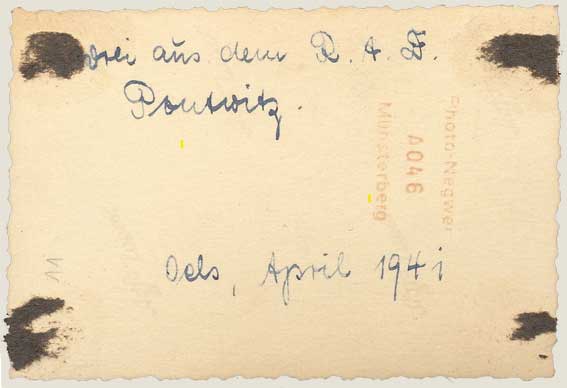 Drei aus dem R. A. D.
Pontwitz.
Photo-Negwer
A046
Münsterberg
Oels, April 1941
11